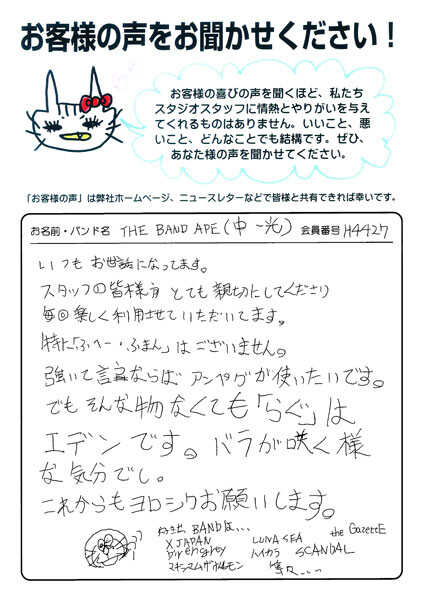 お客様の声をお聞かせください！
お客様の喜びの声を聞くほど、私たち
スタジオスタッフに情熱とやりがいを与え
てくれるものはありません。いいこと、悪
いこと、どんなことでも結構です。ぜひ、
あなた様の声を聞かせてください。
「お客様の声」は弊社ホームページ、ニュースレターなどで皆様と共有できれば幸いです。
お名前・バンド名 THE BAND APE (中 一光) 会員番号 H4427
いつも お世話になってます。
スタッフの皆様方 とても 親切にしてくださり
毎回 楽しく 利用させて いただいてます。
特に「ふへー・ふまん」は ございません。
強いて言うならば アンペグが使いたいです。
でも そんな物 なくても 「らぐ」は
エデン です。 バラが咲く様
な気分でし。
これからも ヨロシクお願いします。
好きな BANDは...
X JAPAN LUNA SEA the GazettE
Dir en grey ハイカラ SCANDAL
マキシマム ザ ホルモン 等々...